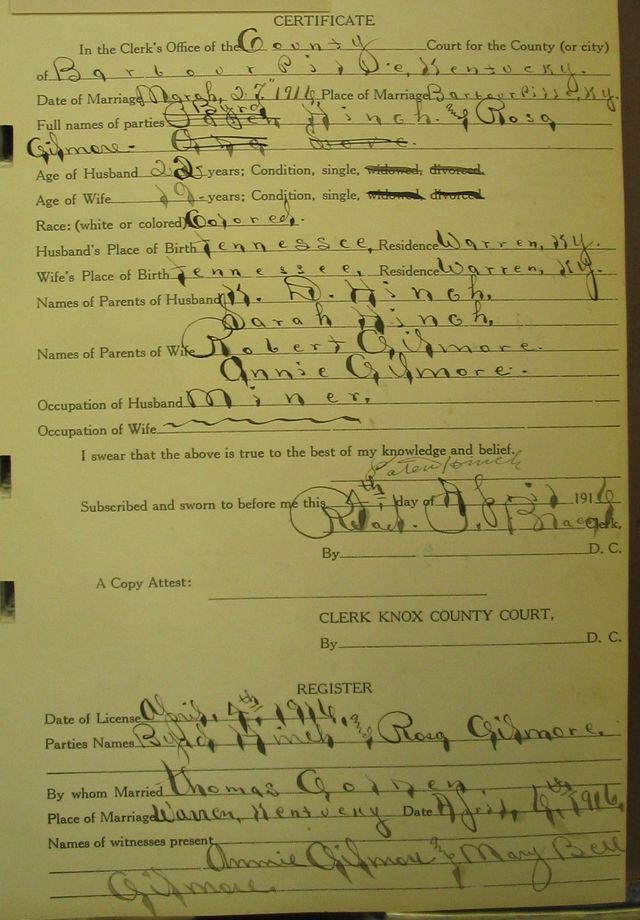 CERTIFICATE
In the Clerk's Office of the County Court for the County (or city)
of Barbourville, Kentucky.
Date of Marriage March, 27" 1916, Place of Marriage Barbourville, Ky.
Byrd
Full names of parties Hinch. & Rosa
Gilmore.
Age of Husband 22 years; Condition, single, widowed, divorced
Age of Wife 19 years; Condition, single, widowed, divorced
Race: (white or colored) Colored.
Husband's Place of Birth Tennessee, Residence Warren, Ky.
Wife's Place of Birth Tennessee, Residence Warren, Ky.
Names of Parents of Husband D. Hinch,
Sarah Hinch,
Names of Parents of Wife Robert Gilmore.
Annie Gilmore.
Occupation of Husband Miner,
Occupation of Wife
I swear that the above is true to the best of my knowledge and belief.
Hinch
Subscribed and sworn to before me this 4th, day of April 1916
Clerk,
By D. C.
A Copy Attest:
CLERK KNOX COUNTY COURT,
By D. C.
REGISTER
Date of License April, 4th, 1916,
Parties Names Byrd Hinch & Rosa Gilmore.
By whom Married Thomas
Place of Marriage Warren, Kentucky Date April, 6th, 1916,
Names of witnesses present
Annie Gilmore & Mary Bell
Gilmore.